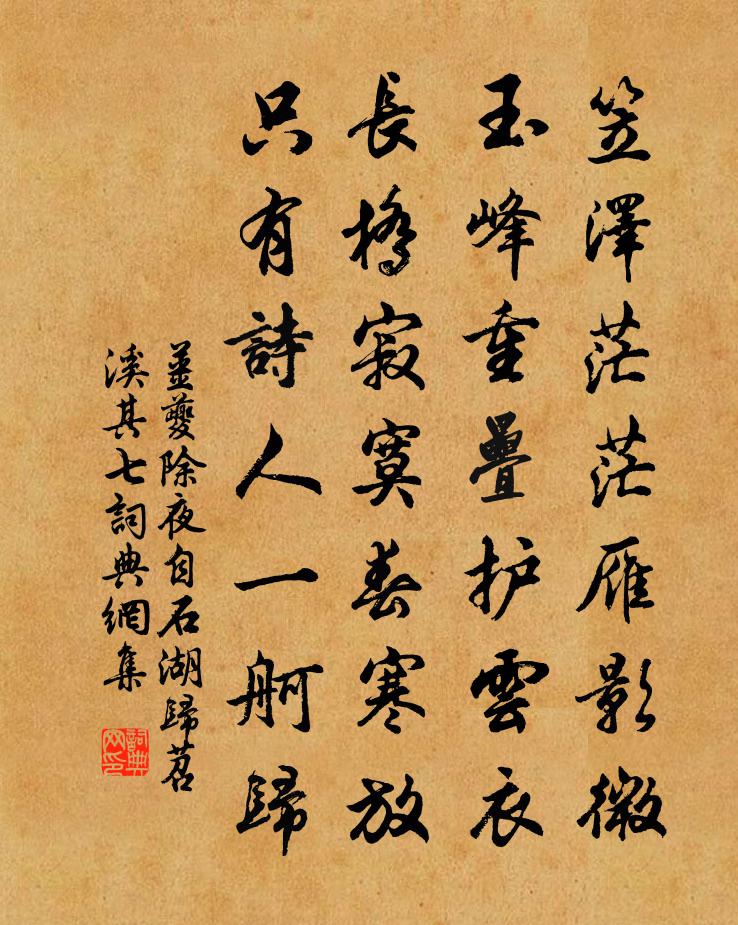 笠澤茫茫雁影微
玉峰重疊护雲衣
長橋寂寞春寒放
只有詩人一舸歸
薑夔除夜自石湖歸苕
溪其七詞典網集
詞典
网印